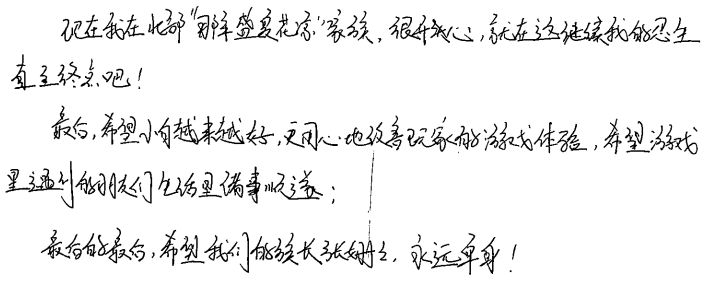 现在我在北部“那年盛夏花家”家族，很开心，就在这继续我的忍生
直至终点吧！
最后，希望小白越来越好，更用心地改善玩家的游戏体验，希望游戏
里遇到的朋友们生活里诸事顺遂；
最后的最后，希望我们的族长张姐，永远单身！